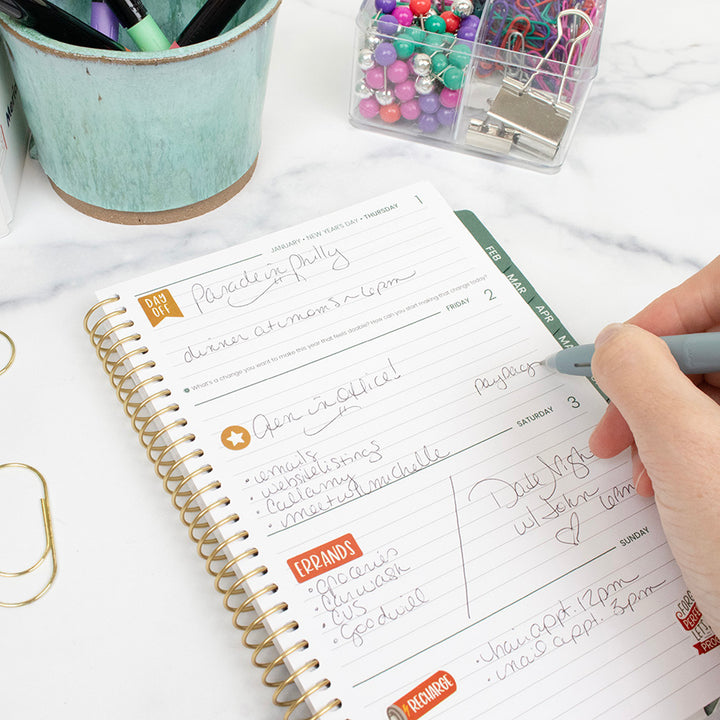 JANUARY • NEW YEAR'S DAY • THURSDAY 1
DAY OFF
Parade in Philly
dinner at moms ~ 6pm
What's a change you want to make this year that feels doable? How can you start making that change today?
FRIDAY 2
Gen in office!
payday
• emails
• website listings
• call amy
• meet w/ michelle
SATURDAY 3
ERRANDS
• groceries
• car wash
• CVS
• goodwill
Date Night
w/ John 6pm
♡
SUNDAY
• hair appt. 12pm
• nail appt. 3pm
RECHARGE
FEB
MAR
APR